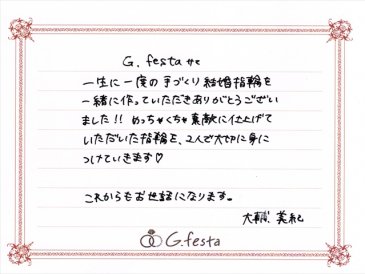 G.festa さま
一生に一度の手づくり結婚指輪を
一緒に作っていただきありがとうござい
ました!! めっちゃくちゃ素敵に仕上げて
いただいた指輪を、2人で大切に身に
つけていきます♡
これからもお世話になります。
大輔 美紀
G.festa